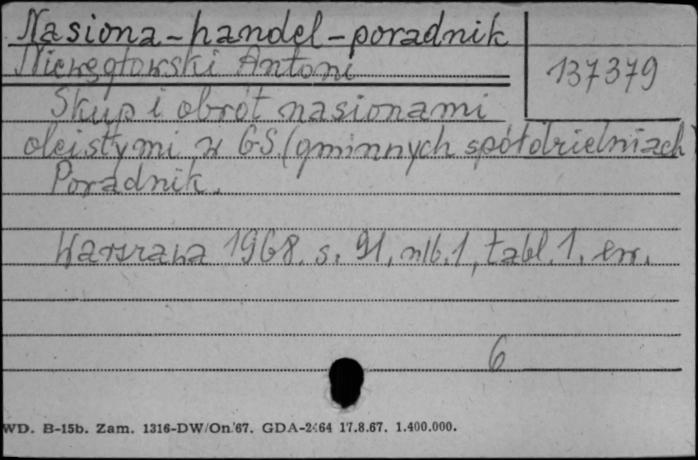 Nasiona-handel-poradnik
Niewęgłowski Antoni
137379
Skup i obrót nasionami
oleistymi w GS. (gminnych spółdzielniach)
Poradnik.
Warszawa 1968. s. 91, nlb. 1, tabl. 1. err.
6
WD. B-15b. Zam. 1316-DW/On.'67. GDA-2464 17.8.67. 1.400.000.